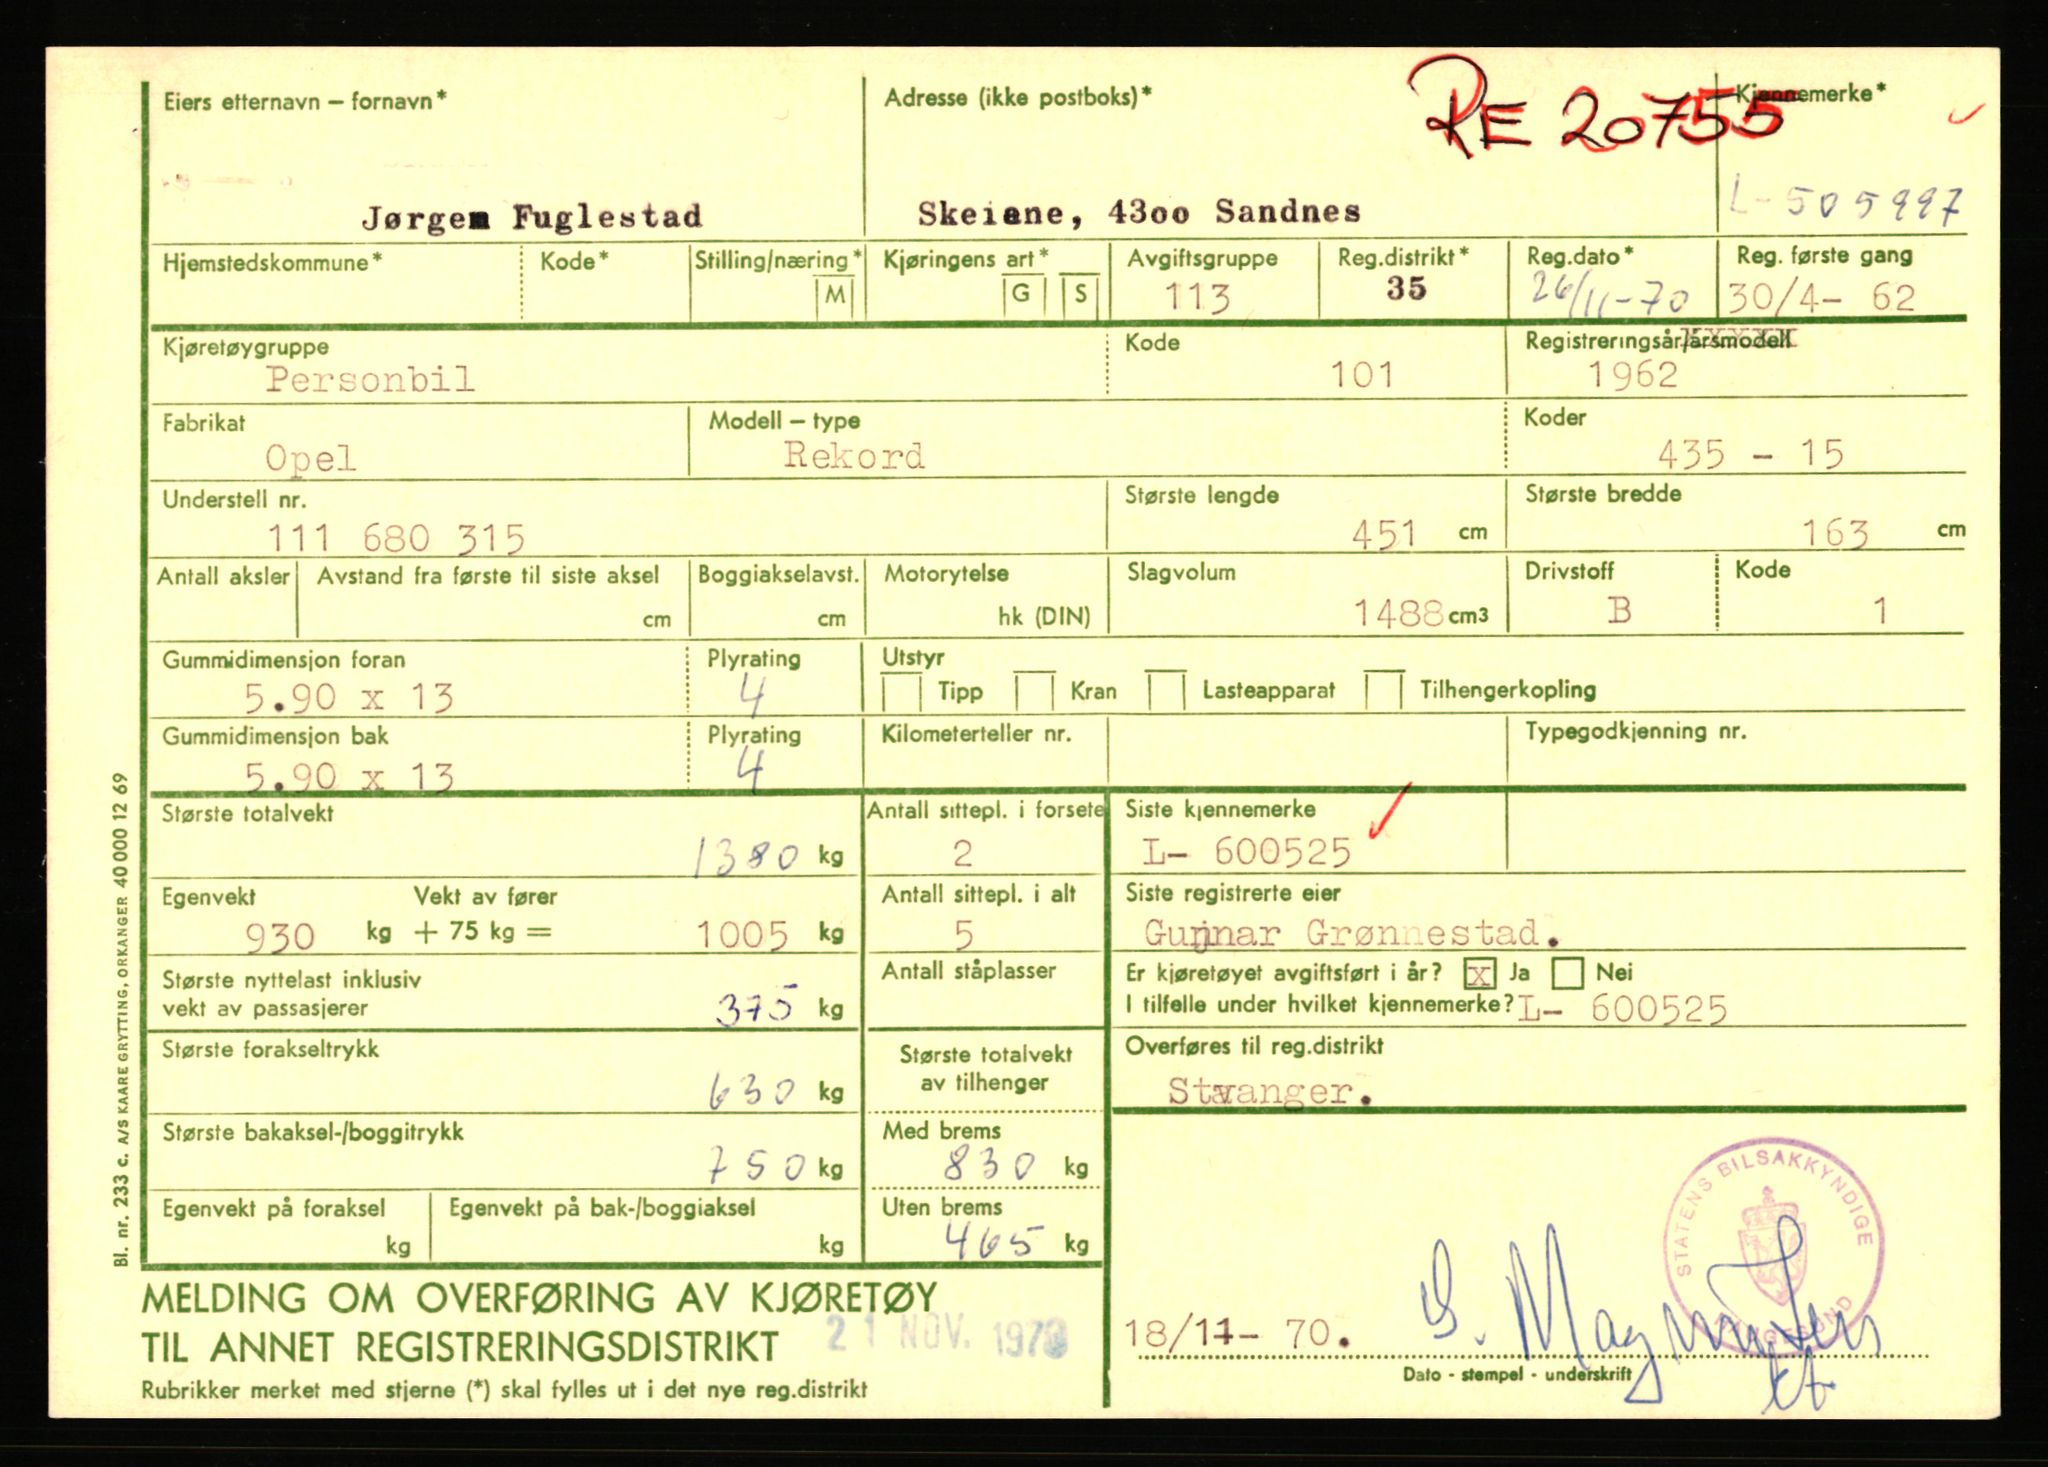 Eiers etternavn – fornavn*
Adresse (ikke postboks)*
Kjennemerke*
RE 20755
Jørgen Fuglestad
Skeiene, 43oo Sandnes
L- 505997
Hjemstedskommune*
Kode*
Stilling/næring*
M
Kjøringens art*
G
S
Avgiftsgruppe
113
Reg.distrikt*
35
Reg.dato*
26/11-70
Reg. første gang
30/4- 62
Kjøretøygruppe
Personbil
Kode
101
Registreringsår/årsmodell
1962
Fabrikat
Opel
Modell – type
Rekord
Koder
435 - 15
Understell nr.
111 680 315
Største lengde
451 cm
Største bredde
163 cm
Antall aksler
Avstand fra første til siste aksel
cm
Boggiakselavst.
cm
Motorytelse
hk (DIN)
Slagvolum
1488 cm3
Drivstoff
B
Kode
1
Gummidimensjon foran
5.90 x 13
Plyrating
4
Utstyr
Tipp
Kran
Lasteapparat
Tilhengerkopling
Gummidimensjon bak
5.90 x 13
Plyrating
4
Kilometerteller nr.
Typegodkjenning nr.
Største totalvekt
1380 kg
Antall sittepl. i forsete
2
Siste kjennemerke
L- 600525
Egenvekt
930 kg
Vekt av fører
+ 75 kg =
1005 kg
Antall sittepl. i alt
5
Siste registrerte eier
Gunnar Grønnestad.
Største nyttelast inklusiv
vekt av passasjerer
375 kg
Antall ståplasser
Er kjøretøyet avgiftsført i år? x Ja Nei
I tilfelle under hvilket kjennemerke? L- 600525
Største forakseltrykk
630 kg
Største totalvekt
av tilhenger
Overføres til reg.distrikt
Stvanger.
Største bakaksel-/boggitrykk
750 kg
Med brems
830 kg
Egenvekt på foraksel
kg
Egenvekt på bak-/boggiaksel
kg
Uten brems
465 kg
MELDING OM OVERFØRING AV KJØRETØY
TIL ANNET REGISTRERINGSDISTRIKT
21 NOV. 1970
Rubrikker merket med stjerne (*) skal fylles ut i det nye reg.distrikt
18/11- 70.
Dato - stempel - underskrift
STATENS BILSAKKYNDIGE
Bl. nr. 233 c. A/S KAARE GRYTTING, ORKANGER 40 000 12 69